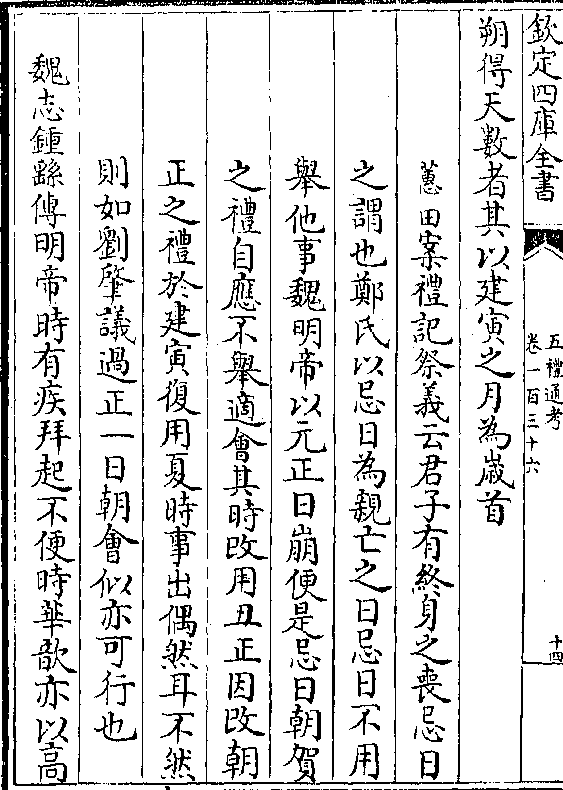 欽定四庫全書
五禮通考
卷一百三十六
十四
朔得天數者其以建寅之月為歲首
蕙田案禮記祭義云君子有終身之喪忌日
之謂也鄭氏以忌日為親亡之日忌日不用
舉他事魏明帝以元正日崩便是忌日朝賀
之禮自應不舉適會其時改用丑正因改朝
正之禮於建寅復用夏時事出偶然耳不然
則如劉肇議過正一日朝會似亦可行也
魏志鍾繇傳明帝時有疾拜起不便時華歆亦以高